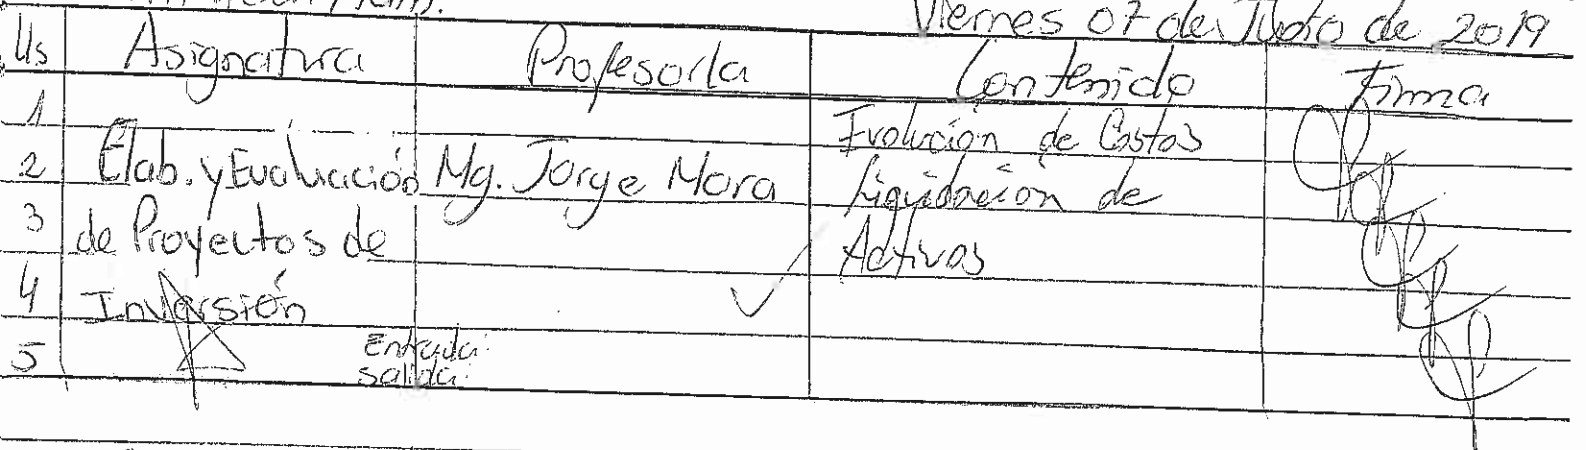 Viernes 07 de Junio de 2019
Us Asignatura Profesor/a Contenido Firma
1 Evolución de Costos
2 Elab. y Evaluación Mg. Jorge Mora Liquidación de
3 de Proyectos de Activos
4 Inversión
5 Entrada:
salida: